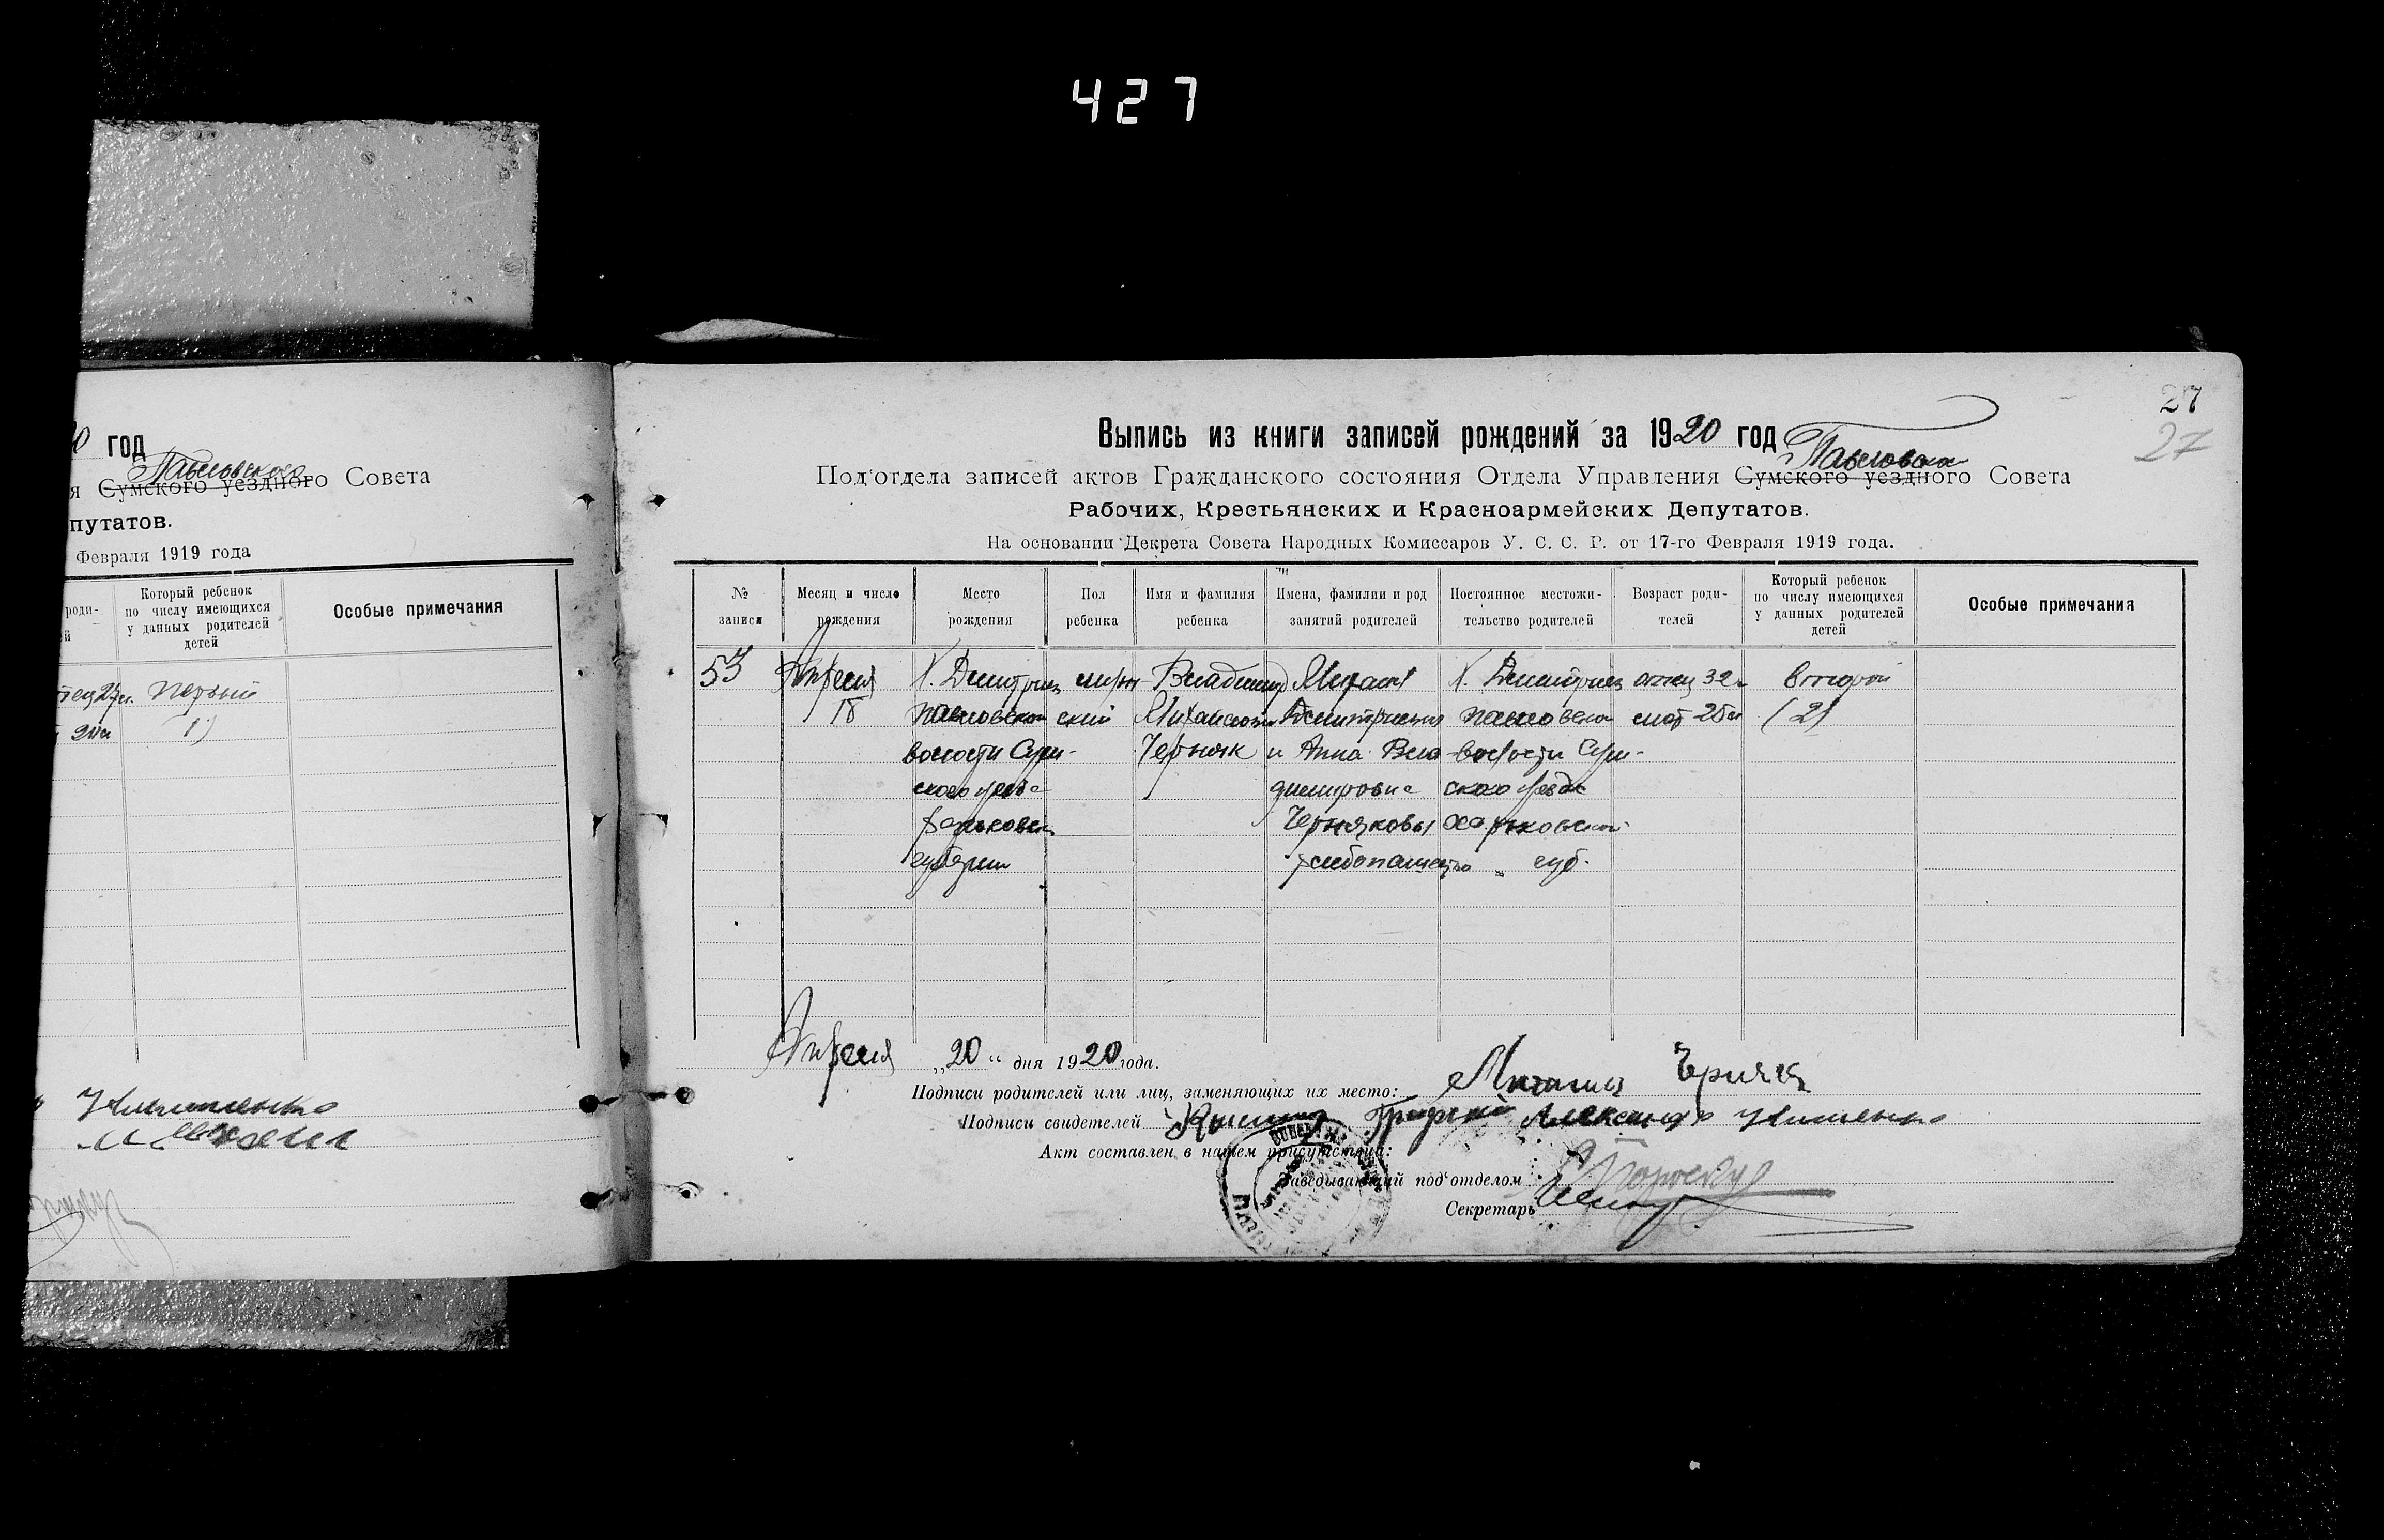 427
0 год
Павловского
я Сумского уездного Совета
путатов.
Февраля 1919 года
роди-
й
Который ребенок
по числу имеющихся
у данных родителей
детей
Особые примечания
первый
1)
27
27
Выпись из книги записей рождений за 1920 год
Павловск
Под'отдела записей актов Гражданского состояния Отдела Управления Сумского уездного Совета
Рабочих, Крестьянских и Красноармейских Депутатов.
На основании Декрета Совета Народных Комиссаров У. С. С. Р. от 17-го Февраля 1919 года.
№
записи
Месяц и число
рождения
Место
рождения
Пол
ребенка
Имя и фамилия
ребенка
Имена, фамилии и род
занятий родителей
Постоянное местожи-
тельство родителей
Возраст роди-
телей
Который ребенок
по числу имеющихся
у данных родителей
детей
Особые примечания
53
Апреля
18
Х. Дмитриев
Павловской
волости Сум-
ского уезда
Харьковск
губернии
мужс
ский
Владимир
Михайлович
Черняк
Михаил
Дмитриевич
и Анна Вла
димировна
Черняковы
хлебопашество
Х. Дмитриев
Павловской
волости Сум-
ского уезда
Харьковской
губ.
отец 32 л
мат 25 л
второй
(2)
Апреля „20“ дня 1920 года.
Подписи родителей или лиц, заменяющих их место: Михаил Черняк
Подписи свидетелей Григорий Александр
Акт составлен в нашем присутствии:
Заведывающий под'отделом
Секретарь